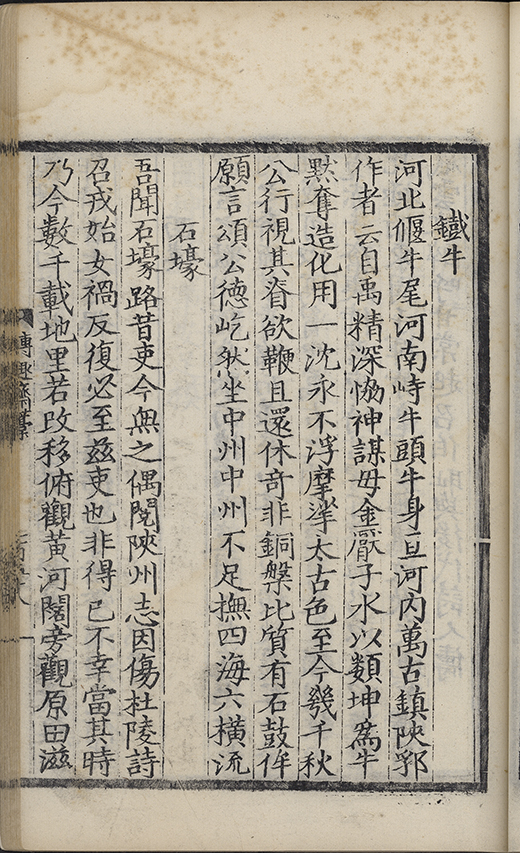 鐵牛
河北偃牛尾河南峙牛頭牛身亘河内萬古鎮陝郛
作者云自禹精深恊神謀毋金厭子水以類坤爲牛
黙奪造化用一沈永不浮摩挲太古色至今幾千秋
公行視其脊欲鞭且還休竒非銅槃比質有石鼓侔
願言頌公德屹然坐中州中州不足撫四海六橫流
石壕
吾聞石壕路昔吏今無之偶閱陝州志因傷杜陵詩
召戎始女禍反復必至兹吏也非得已不幸當其時
乃今數千載地里若攺移俯觀黄河闊旁觀原田滋
博趣齋藁